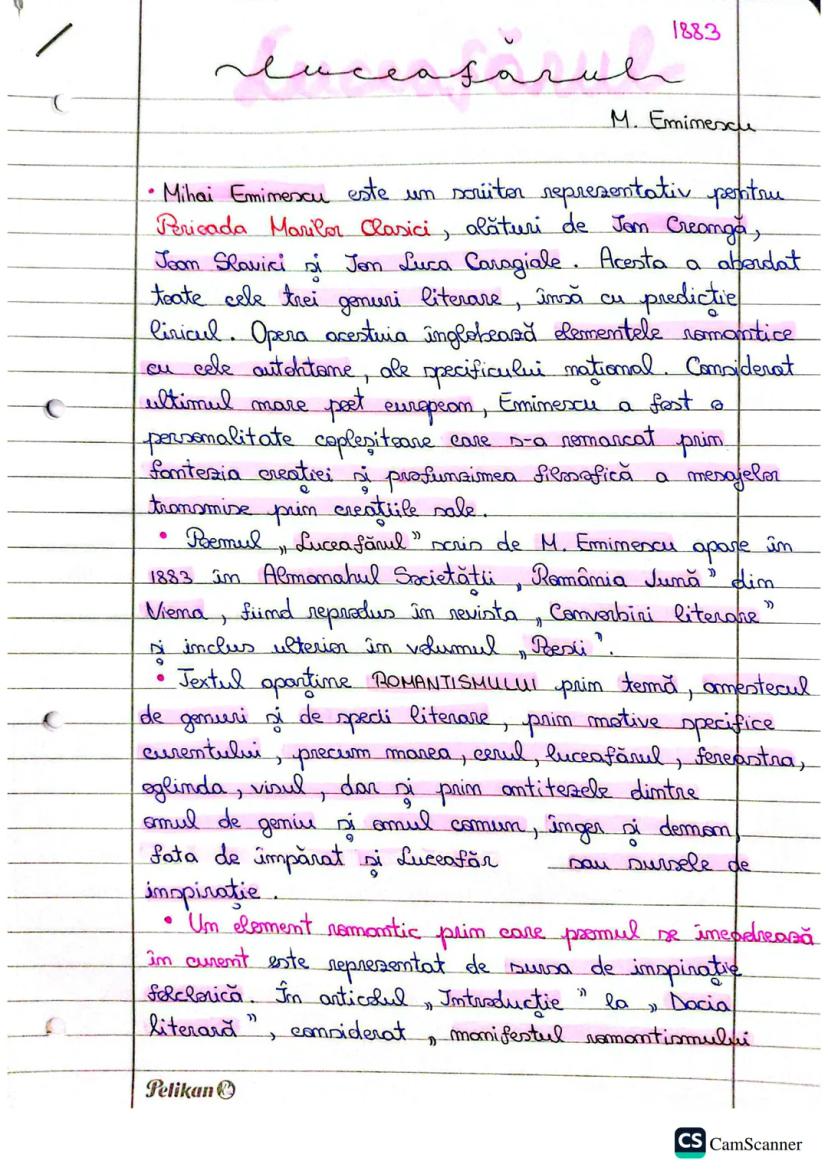 1883
Luceafărul
M. Eminescu
• Mihai Eminescu este un scriitor reprezentativ pentru
Perioada Marilor Clasici, alături de Ion Creangă,
Ioan Slavici și Ion Luca Caragiale. Acesta a abordat
toate cele trei genuri literare, însă cu predicție
liricul. Opera acestuia înglobează elementele romantice
cu cele autohtone, ale specificului național. Considerat
ultimul mare poet european, Eminescu a fost o
personalitate copleșitoare care s-a remarcat prin
fantezia creației și profunzimea filosofică a mesajelor
transmise prin creațiile sale.
• Poemul „Luceafărul” scris de M. Eminescu apare în
1883 în Almanahul Societății „România Jună” din
Viena, fiind reprodus în revista „Convorbiri literare”
și inclus ulterior în volumul „Poesii”.
• Textul aparține ROMANTISMULUI prin temă, amestecul
de genuri și de specii literare, prin motive specifice
curentului, precum marea, cerul, luceafărul, fereastra,
oglinda, visul, dar și prin antitezele dintre
omul de geniu și omul comun, înger și demon,
fata de împărat și Luceafăr sau sursele de
inspirație.
• Un element romantic prin care poemul se încadrează
în curent este reprezentat de sursa de inspirație
folclorică. În articolul „Introducție” la „Dacia
literară”, considerat „manifestul romantismului
Pelikan
CS CamScanner